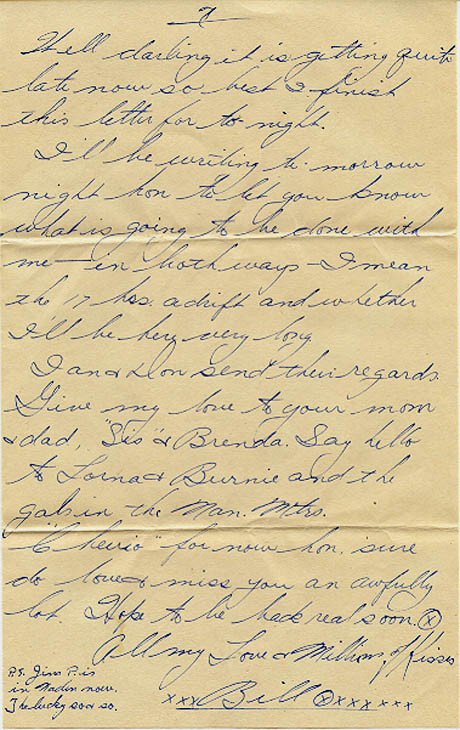 7
Well darling it is getting quite
late now so best I finish
this letter for to-night.
I'll be writing to-morrow
night hon to let you know
what is going to be done with
me — in both ways — I mean
the 17 hrs. adrift and whether
I'll be here very long.
Ian & Don send their regards.
Give my love to your mom
& dad, "Sis" & Brenda. Say hello
to Lorna & Burnie and the
gals in the Man. Mtrs.
"Cheerio" for now hon. sure
do love & miss you an awfully
lot. Hope to be back real soon. x
All my Love & Millions of Kisses
xxx Bill x xxxxxx
P.S. Jim P. is
in Naden now.
The lucky so & so.